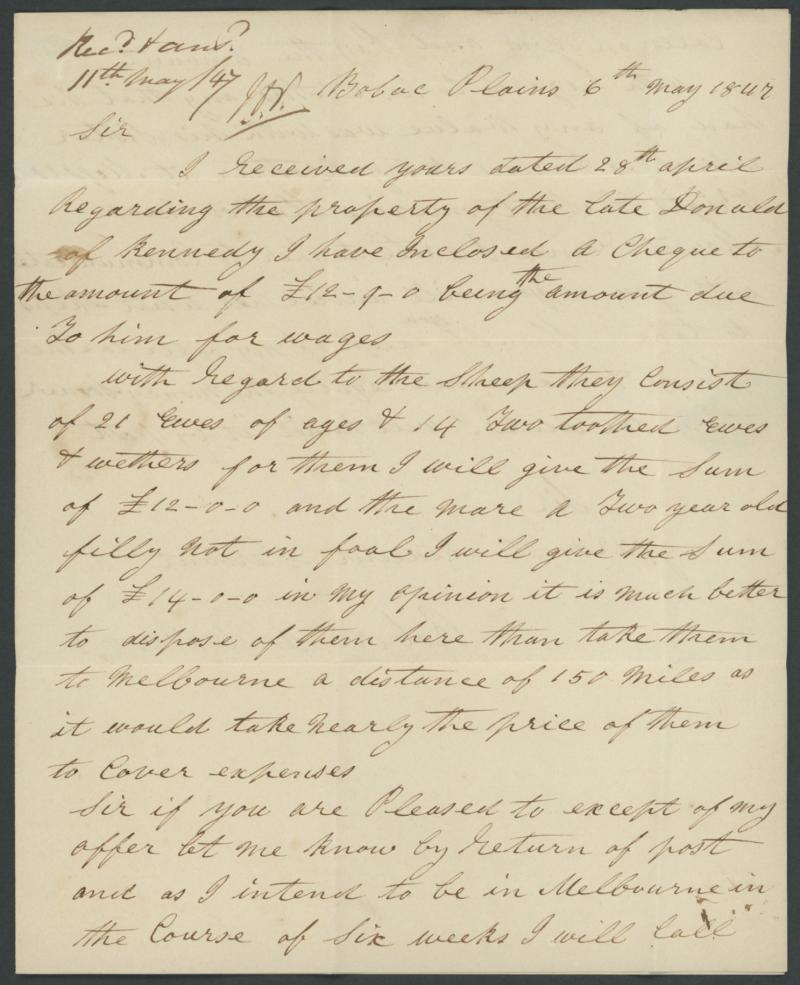 Recd & ansd
11th May/47
Boboc Plains 6th May 1847
Sir
I received yours dated 28th april
Regarding the property of the late Donald
of Kennedy I have Inclosed a Cheque to
the amount of £12-9-0 being the amount due
To him for wages
with regard to the Sheep they Consist
of 21 Ewes of ages & 14 Two toothed Ewes
& wethers for them I will give the Sum
of £12-0-0 and the mare a Two year old
filly Not in foal I will give the Sum
of £14-0-0 in my opinion it is much better
to dispose of them here than take them
to Melbourne a distance of 150 miles as
it would take Nearly the price of them
to Cover expenses
Sir if you are Pleased to except of my
offer let me know by return of post
and as I intend to be in Melbourne in
the Course of Six weeks I will Call